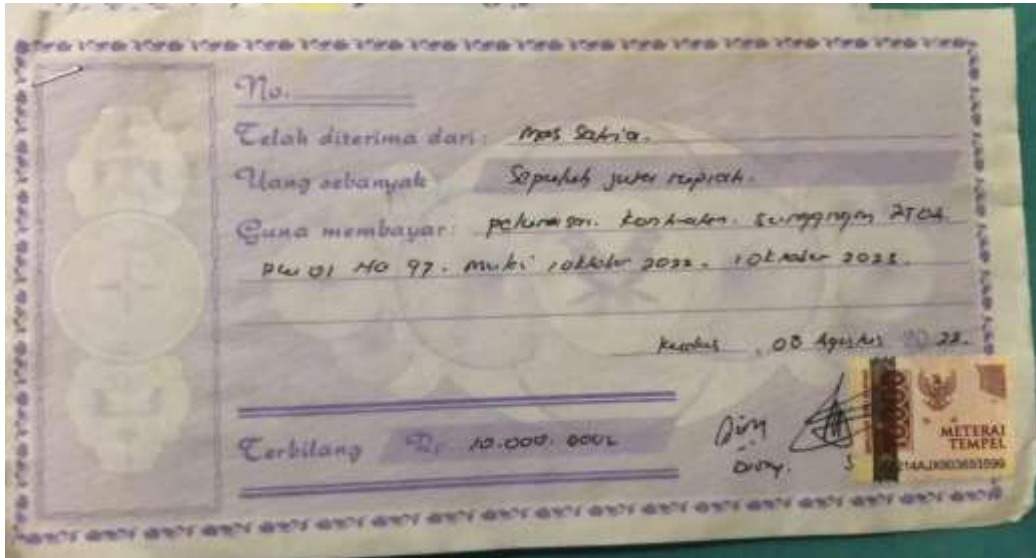 No.
Telah diterima dari: Mas Satria.
Uang sebanyak Sepuluh juta rupiah.
Guna membayar: pelunasan. kontrakan.
NO 97. Mulai 1 oktober 2022. 1 oktober 2023.
Kudus, 08 Agustus 2022.
Terbilang Rp. 10.000.000
METERAI
TEMPEL
10000